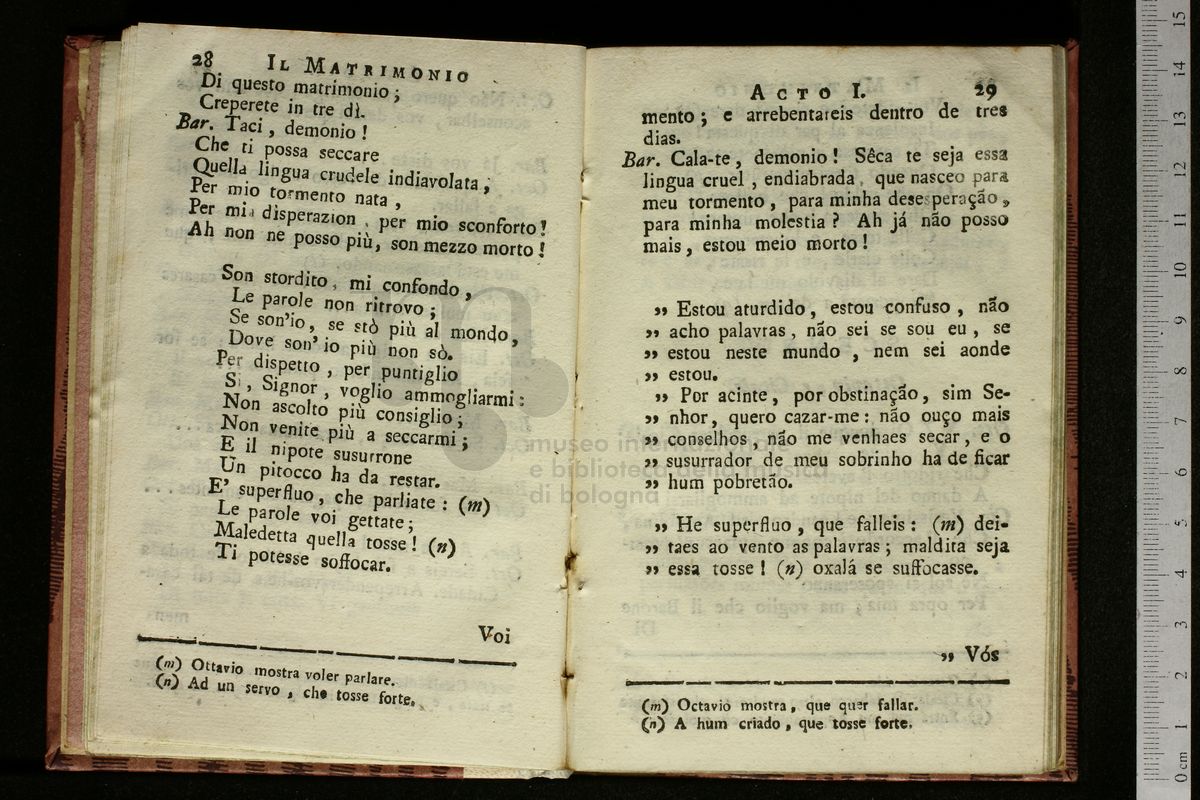 28 IL MATRIMONIO
Di questo matrimonio ;
Creperete in tre dì.
Bar. Taci , demonio !
Che ti possa seccare
Quella lingua crudele indiavolata ,
Per mio tormento nata ,
Per mia disperazion , per mio sconforto !
Ah non ne posso più, son mezzo morto !
Son stordito , mi confondo ,
Le parole non ritrovo ;
Se son'io, se stò più al mondo,
Dove son' io più non sò.
Per dispetto , per puntiglio
Si , Signor , voglio ammogliarmi :
Non ascolto più consiglio ;
Non venite più a seccarmi ;
E il nipote susurrone
Un pitocco ha da restar.
E' superfluo , che parliate : (m)
Le parole voi gettate ;
Maledetta quella tosse ! (n)
Ti potesse soffocar.
Voi
(m) Ottavio mostra voler parlare.
(n) Ad un servo , che tosse forte.
ACTO I. 29
mento ; e arrebentareis dentro de tres
dias.
Bar. Cala-te , demonio ! Sêca te seja essa
lingua cruel , endiabrada , que nasceo para
meu tormento , para minha desesperação ,
para minha molestia ? Ah já não posso
mais , estou meio morto !
„ Estou aturdido , estou confuso , não
„ acho palavras , não sei se sou eu , se
„ estou neste mundo , nem sei aonde
„ estou.
„ Por acinte , por obstinação , sim Se-
„ nhor, quero cazar-me : não ouço mais
„ conselhos , não me venhaes secar , e o
„ susurrador de meu sobrinho ha de ficar
„ hum pobretão.
„ He superfluo , que falleis : (m) dei-
„ taes ao vento as palavras ; maldita seja
„ essa tosse ! (n) oxalá se suffocasse.
„ Vós
(m) Octavio mostra , que quer fallar.
(n) A hum criado , que tosse forte.
museo internazionale
e biblioteca della musica
di bologna
0 cm 1 2 3 4 5 6 7 8 9 10 11 12 13 14 15